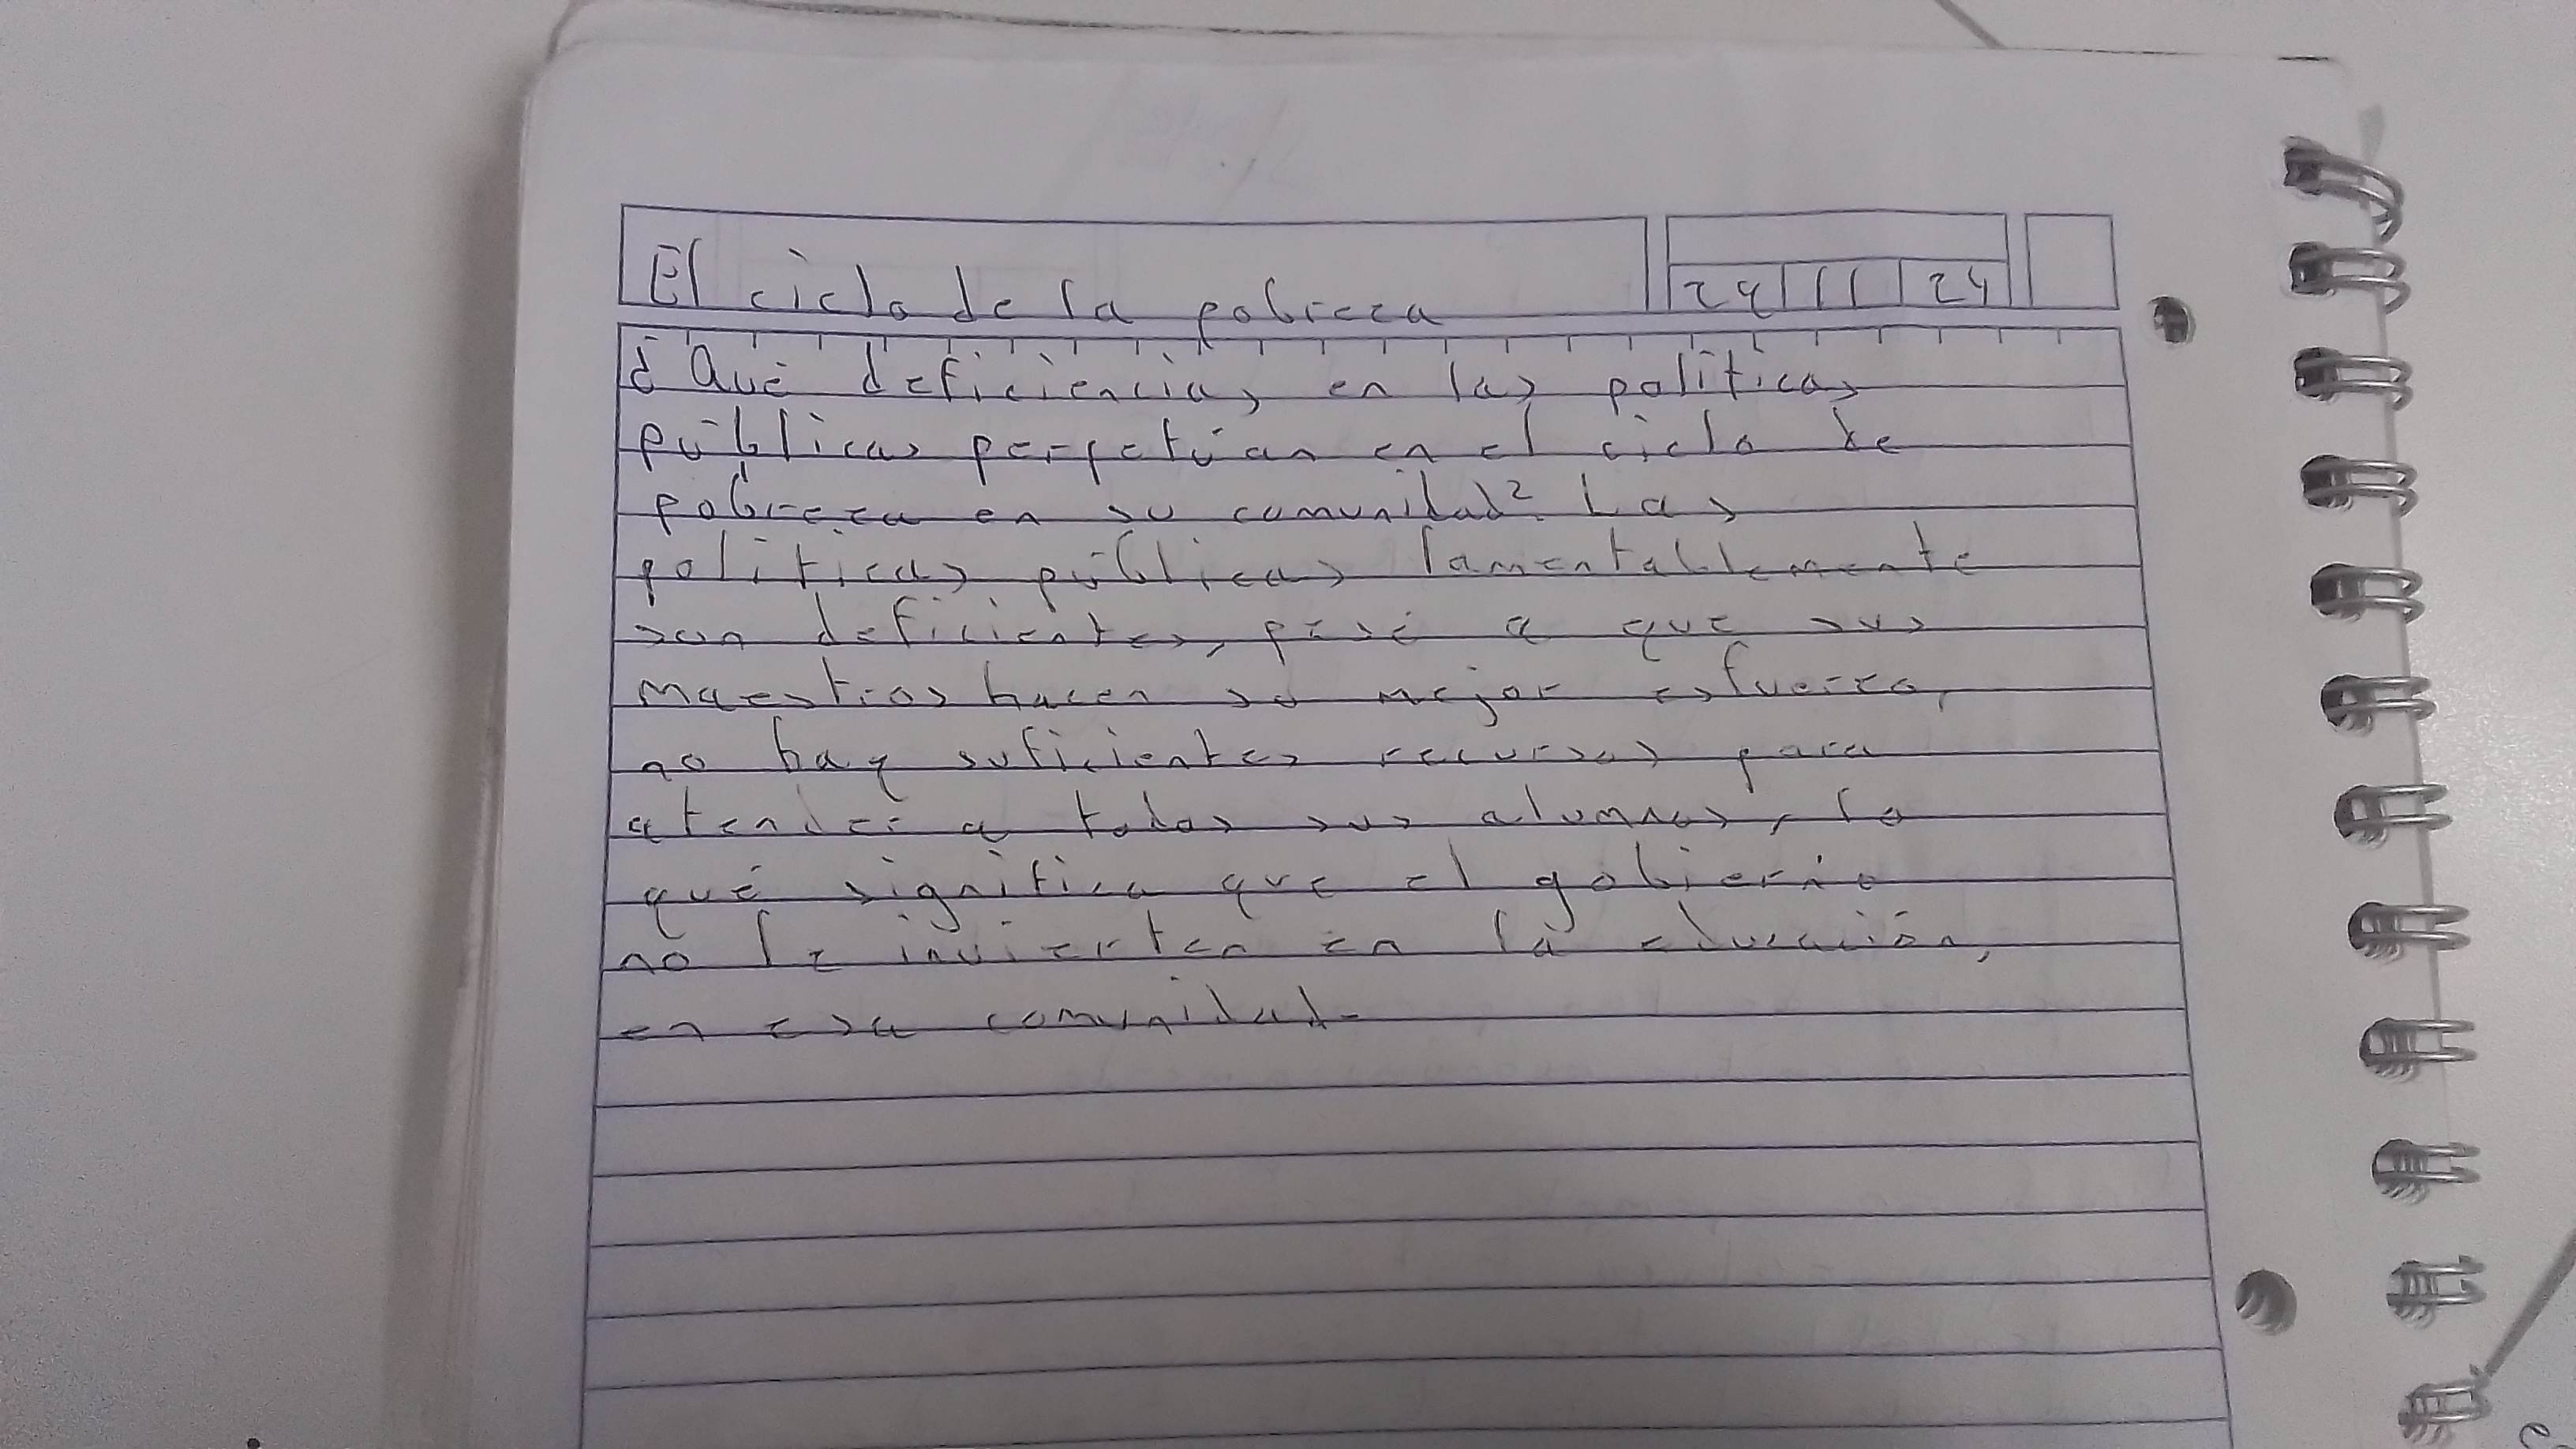 El ciclo de la pobreza
29 11 24
¿Qué deficiencias en las políticas
públicas perpetúan en el ciclo de
pobreza en su comunidad? Las
políticas públicas lamentablemente
son deficientes, pesé a que sus
maestros hacen su mejor esfuerzo,
no hay suficientes recursos para
atender a todos sus alumnos, lo
qué significa que el gobierno
no le invierten en la educación,
en esa comunidad.